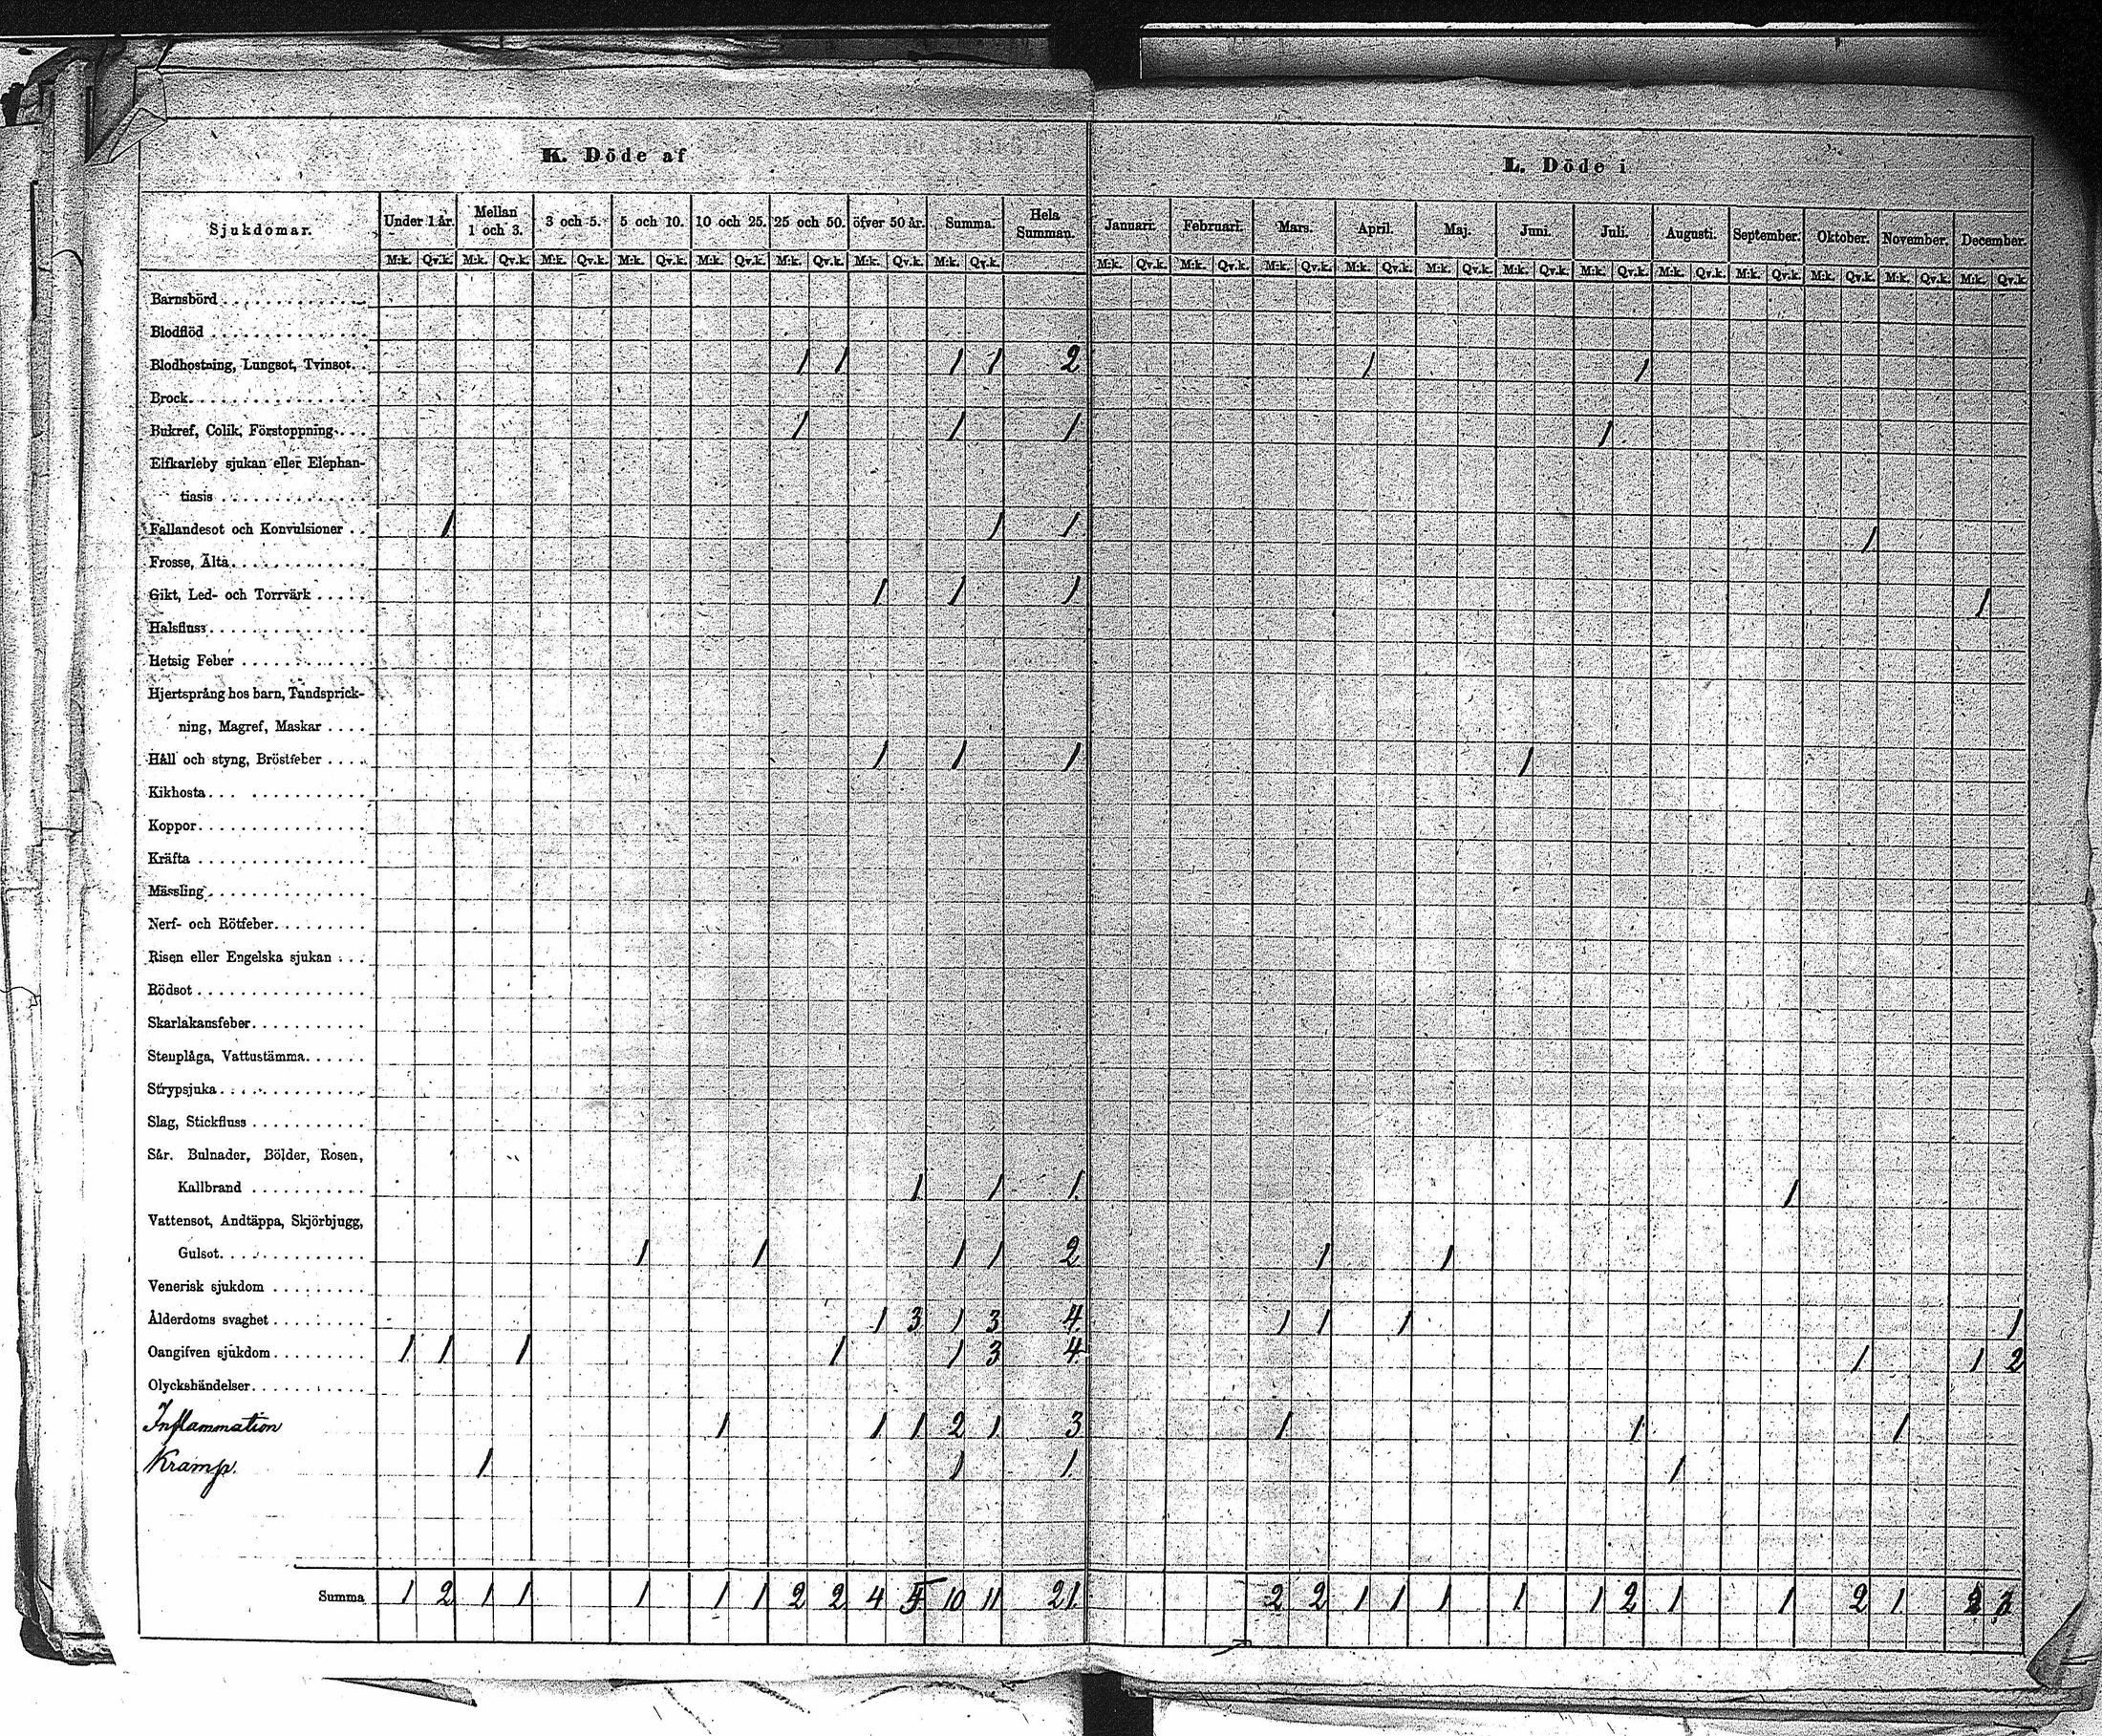 K. Döde af
L. Döde i
Sjukdomar. Under 1 år. Mellan 1 och 3. 3 och 5. 5 och 10. 10 och 25. 25 och 50. öfver 50 år. Summa. Hela Summan. Januari. Februari. Mars. April. Maj. Juni. Juli. Augusti. September. Oktober. November. December.
M:k. Qv.k. M:k. Qv.k. M:k. Qv.k. M:k. Qv.k. M:k. Qv.k. M:k. Qv.k. M:k. Qv.k. M:k. Qv.k. M:k. Qv.k. M:k. Qv.k. M:k. Qv.k. M:k. Qv.k. M:k. Qv.k. M:k. Qv.k. M:k. Qv.k. M:k. Qv.k. M:k. Qv.k. M:k. Qv.k. M:k. Qv.k. M:k. Qv.k.
Barnsbörd
Blodflöd
Blodhostning, Lungsot, Tvinsot. 1 1 1 1 2 1 1
Brock
Bukref, Colik, Förstoppning 1 1 1 1
Elfkarleby sjukan eller Elephan-
tiasis
Fallandesot och Konvulsioner 1 1 1 1
Frosse, Älta
Gikt, Led- och Torrvärk 1 1 1 1
Halsfluss
Hetsig Feber
Hjertsprång hos barn, Tandsprick-
ning, Magref, Maskar
Håll och styng, Bröstfeber 1 1 1 1
Kikhosta
Koppor
Kräfta
Mässling
Nerf- och Rötfeber
Risen eller Engelska sjukan
Rödsot
Skarlakansfeber
Stenplåga, Vattustämma
Strypsjuka
Slag, Stickfluss
Sår. Bulnader, Bölder, Rosen,
Kallbrand 1 1 1 1
Vattensot, Andtäppa, Skjörbjugg,
Gulsot 1 1 1 1 2 1 1
Venerisk sjukdom
Ålderdoms svaghet 1 3 1 3 4 1 1 1 1
Oangifven sjukdom 1 1 1 1 1 3 4 1 1 2
Olyckshändelser
Inflammation 1 1 1 2 1 3 1 1 1
Kramp. 1 1 1 1
Summa 1 2 1 1 1 1 1 2 2 4 5 10 11 21 2 2 1 1 1 1 1 2 1 1 2 1 2 3